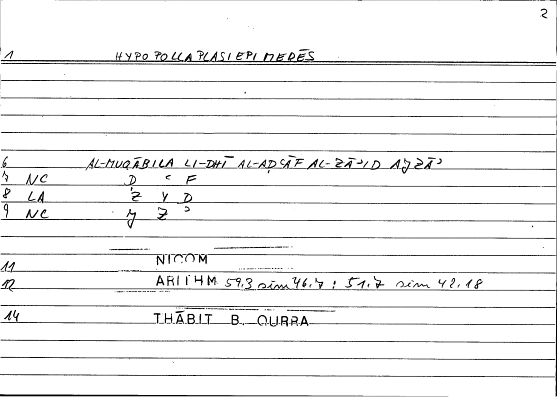 2
1 HYPOPOLLAPLASIEPIMERĒS
6 AL-MUQĀBILA LI-DHĪ AL-AḌʿĀF AL-ZĀʾID AǦZĀʾ
7 NC Ḍ ʿ F
8 LA Z Y D
9 NC Ǧ Z ʾ
11 NICOM
12 ARITHM 59.3 sim 46.7 ; 51.7 sim 42.18
14 THĀBIT B. QURRA